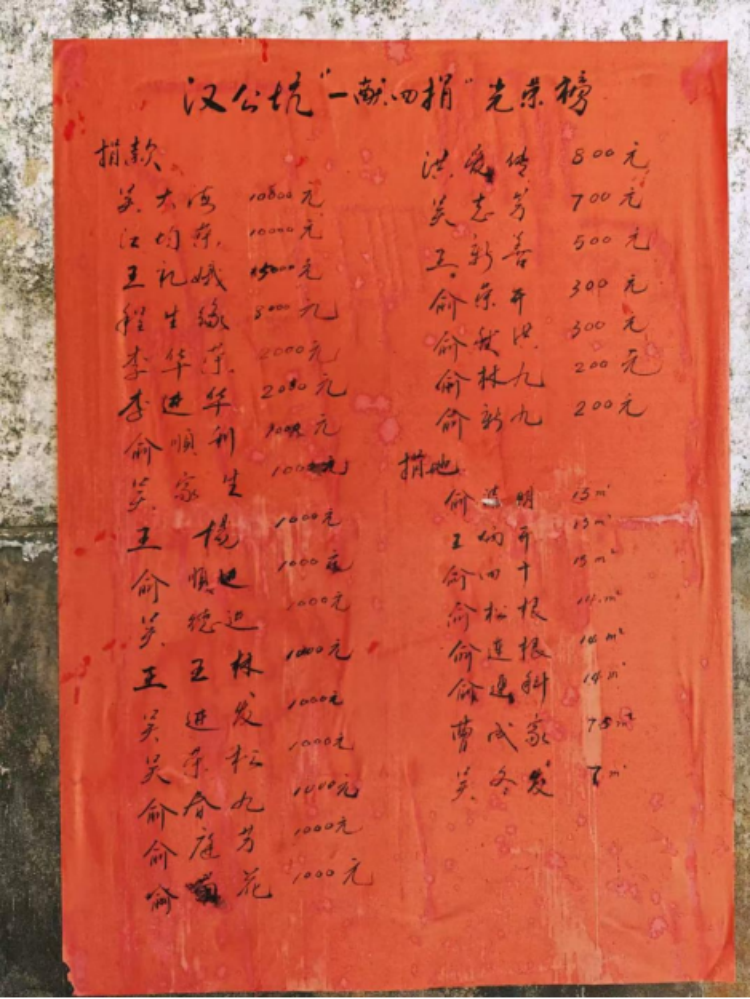 汉公坑"一献四捐"光荣榜
捐款
吴大海 10800元
江均荣 10000元
王礼娥 15000元
程生缘 8000元
李华荣 2000元
李进华 2080元
俞顺利 元
吴家生 1000元
王杨 1000元
俞顺进 1000元
吴德进 1000元
王玉林 1000元
吴进发 1000元
吴荣松 1000元
俞春九 1000元
俞庭芳 1000元
俞菊花 1000元
洪爱传 800元
吴志芳 700元
王新善 500元
俞荣开 300元
俞秋洪 300元
俞林九 200元
俞新九 200元
捐地
俞 明 15m²
王炳开 15m²
俞四十 15m²
俞松根 14m²
俞连根 14m²
俞连科 14m²
曹成家 7.5m²
吴冬发 7m²